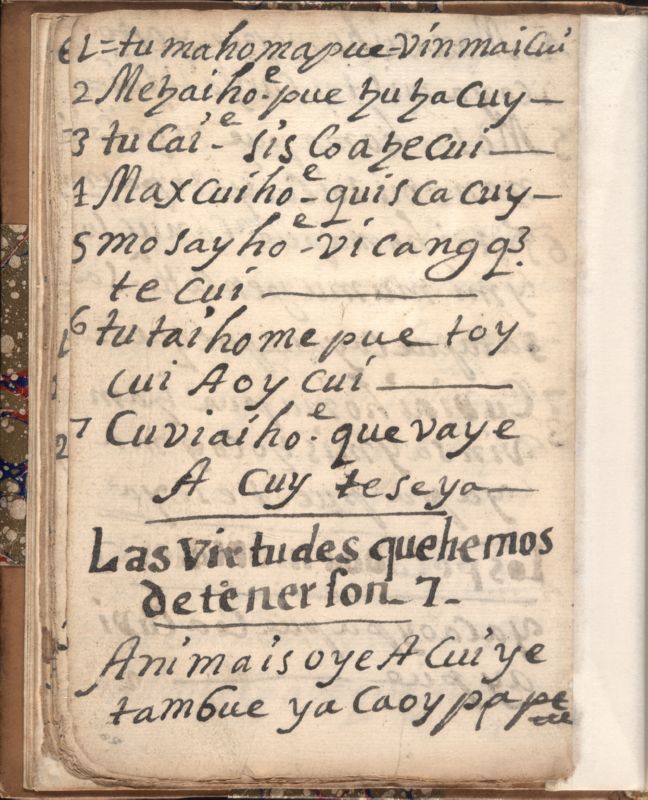 1=tu mahoma pue vin mai cui
2 Meҕaihoᵉ- pue ҕuҕa cuy—
3 tu caiᵉ- sis coaҕe cui—
4 Maxcuihoᵉ- quis ca cuy—
5 mo sayhoᵉ- vicang q3.
te cui—
6 tu taihome pue toy
cui Aoy cui—
7 Cuviaihoᵉ- que vaye
A cuy teseya—
Las virtudes quehemos
detener son 7-
Animais oye A Cuiye
tambue ya Caoy